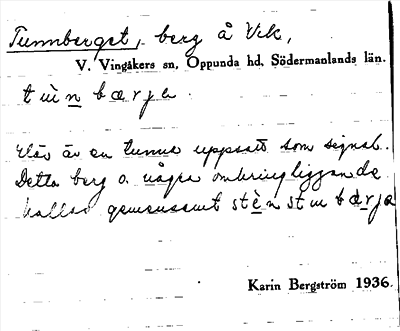 Tunnberget, berg å Vik,
V. Vingåkers sn, Oppunda hd, Södermanlands län.
tùn bærja.
Här är en tunna uppsatt som signal.
Detta berg o. några omkringliggande
kallas gemensamt stènstubærja
Karin Bergström 1936.